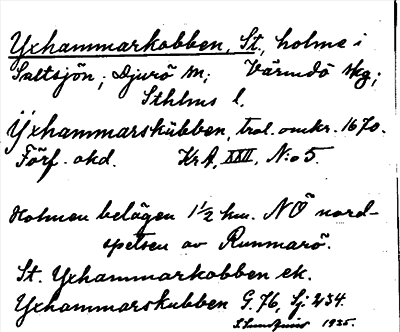 Yxhammarkobben, St., holme i
Saltsjön; Djurö sn; Värmdö skg;
Sthlms l.
Yxhammarskübben, trol. omkr. 1670.
Förf. okd. KrA, XXII, N:o 5.
Holmen belägen 1½ km. NÖ nord-
spetsen av Runmarö.
St. Yxhammarkobben ek.
Yxhammarskubben G. 76, Sj: 234.
1935.